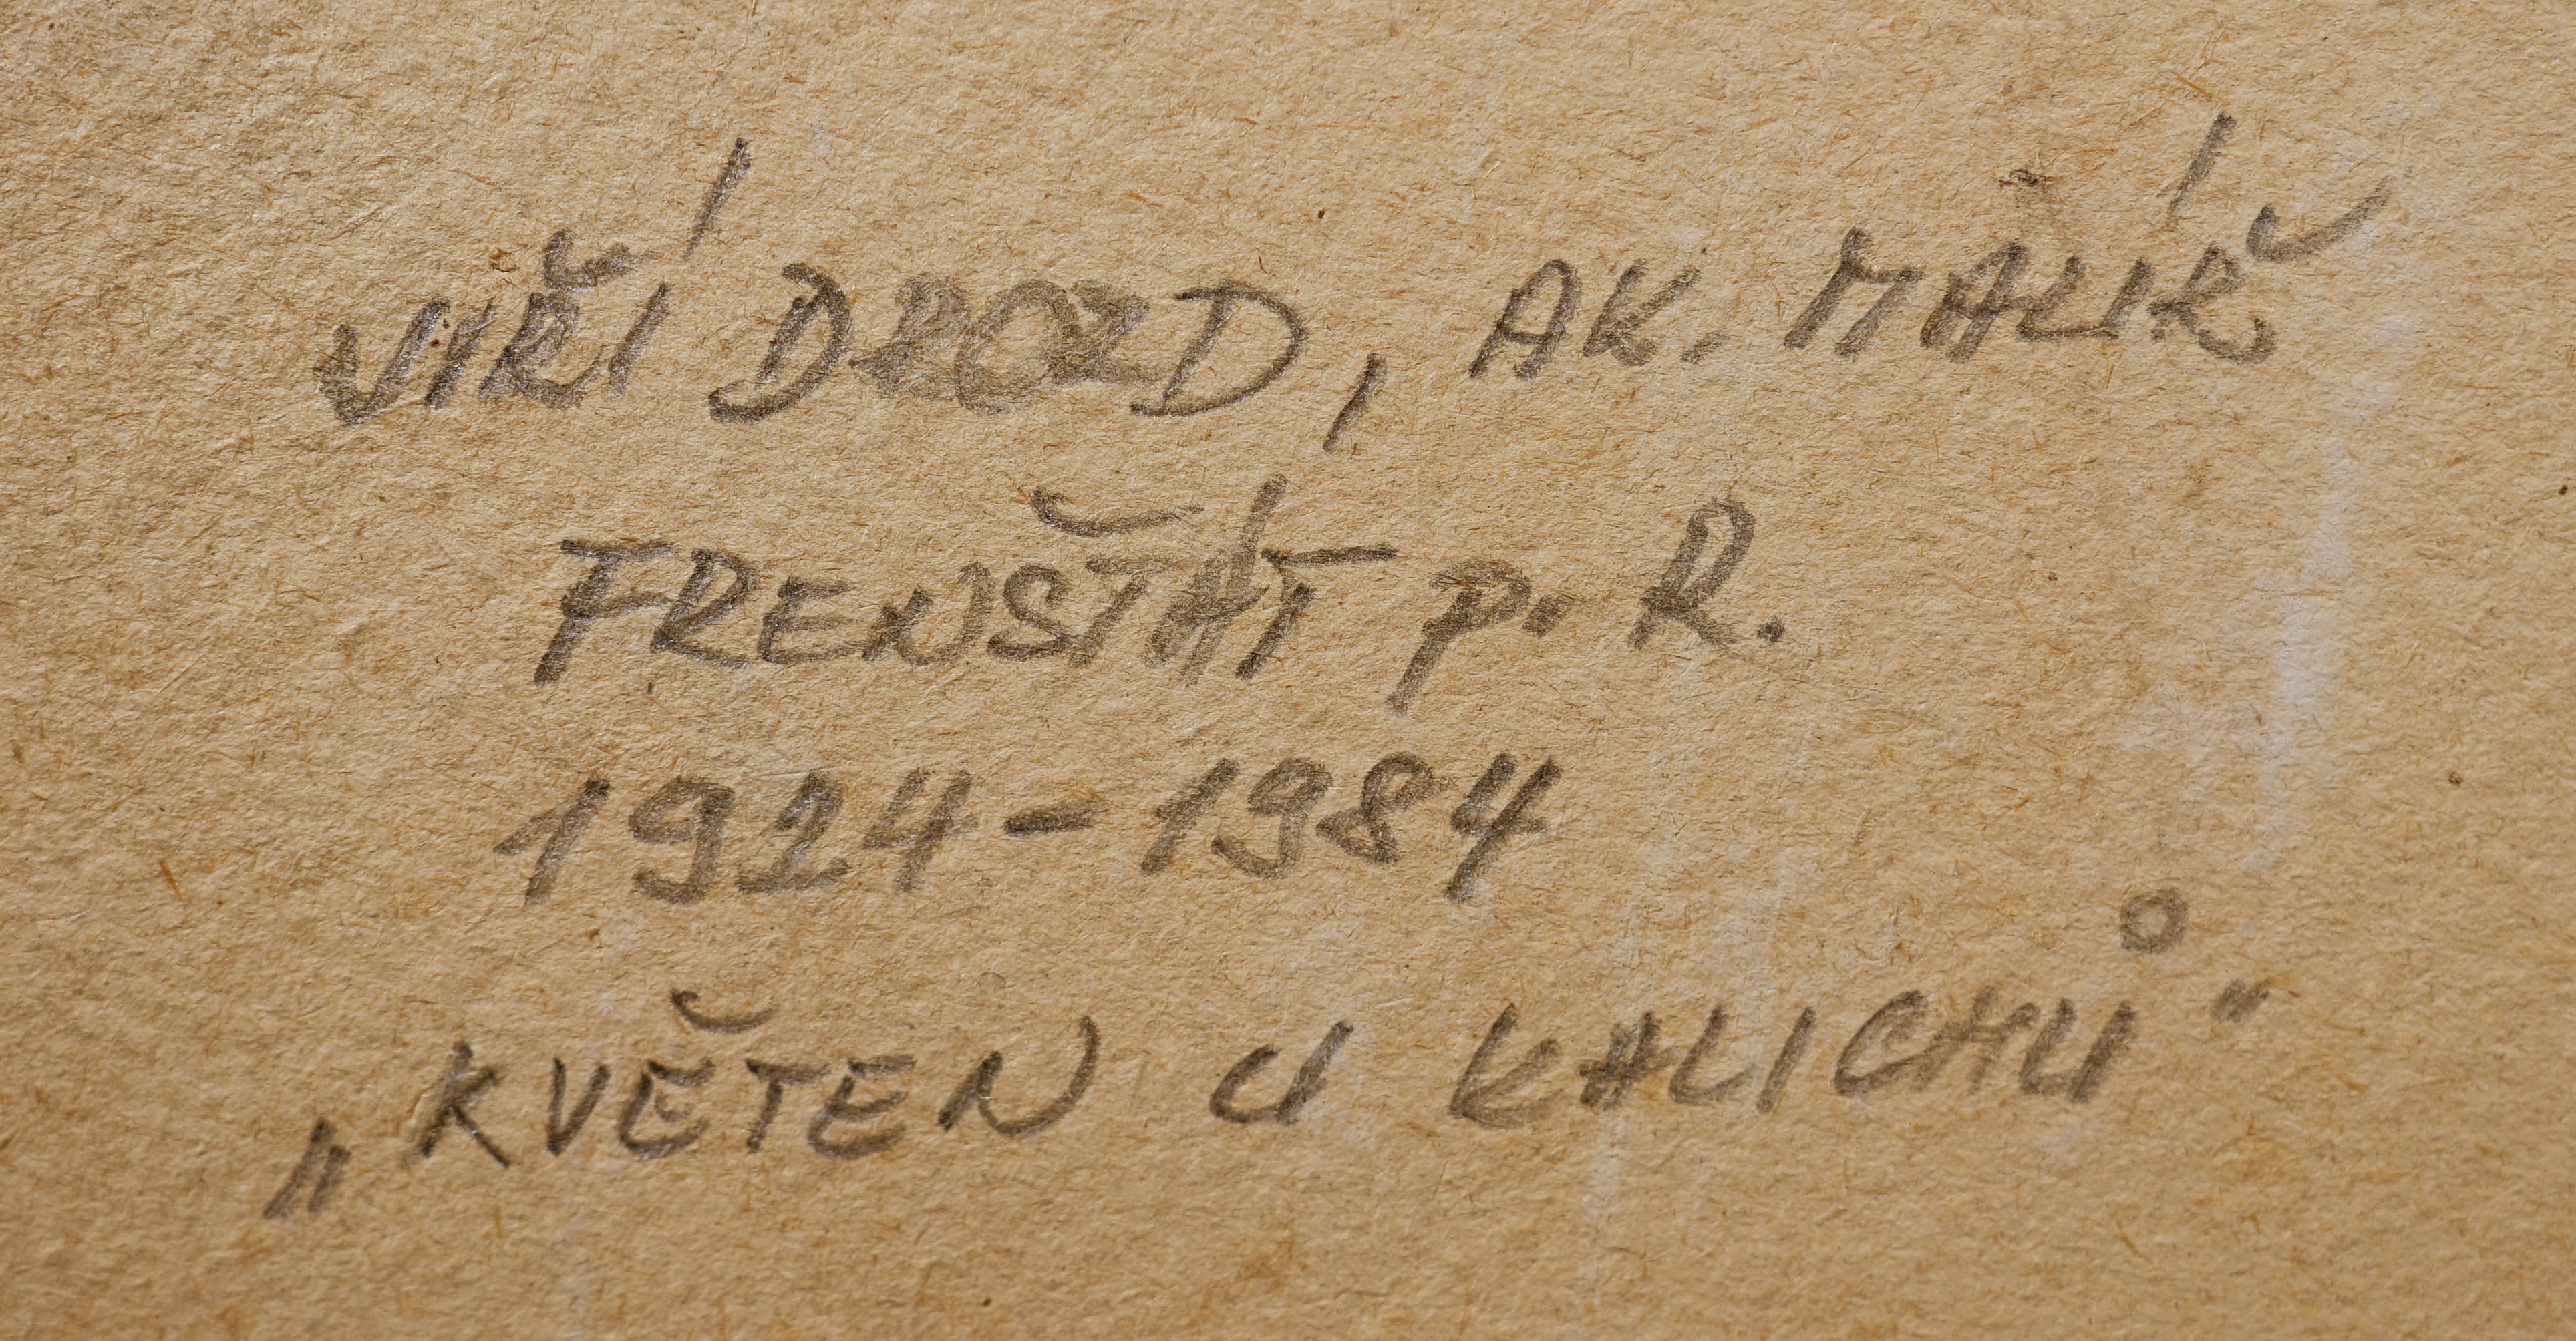 JIŘÍ DROZD, AK. MALÍŘ
FRENŠTÁT p. R.
1924-1984
„KVĚTEN U KALICHŮ"